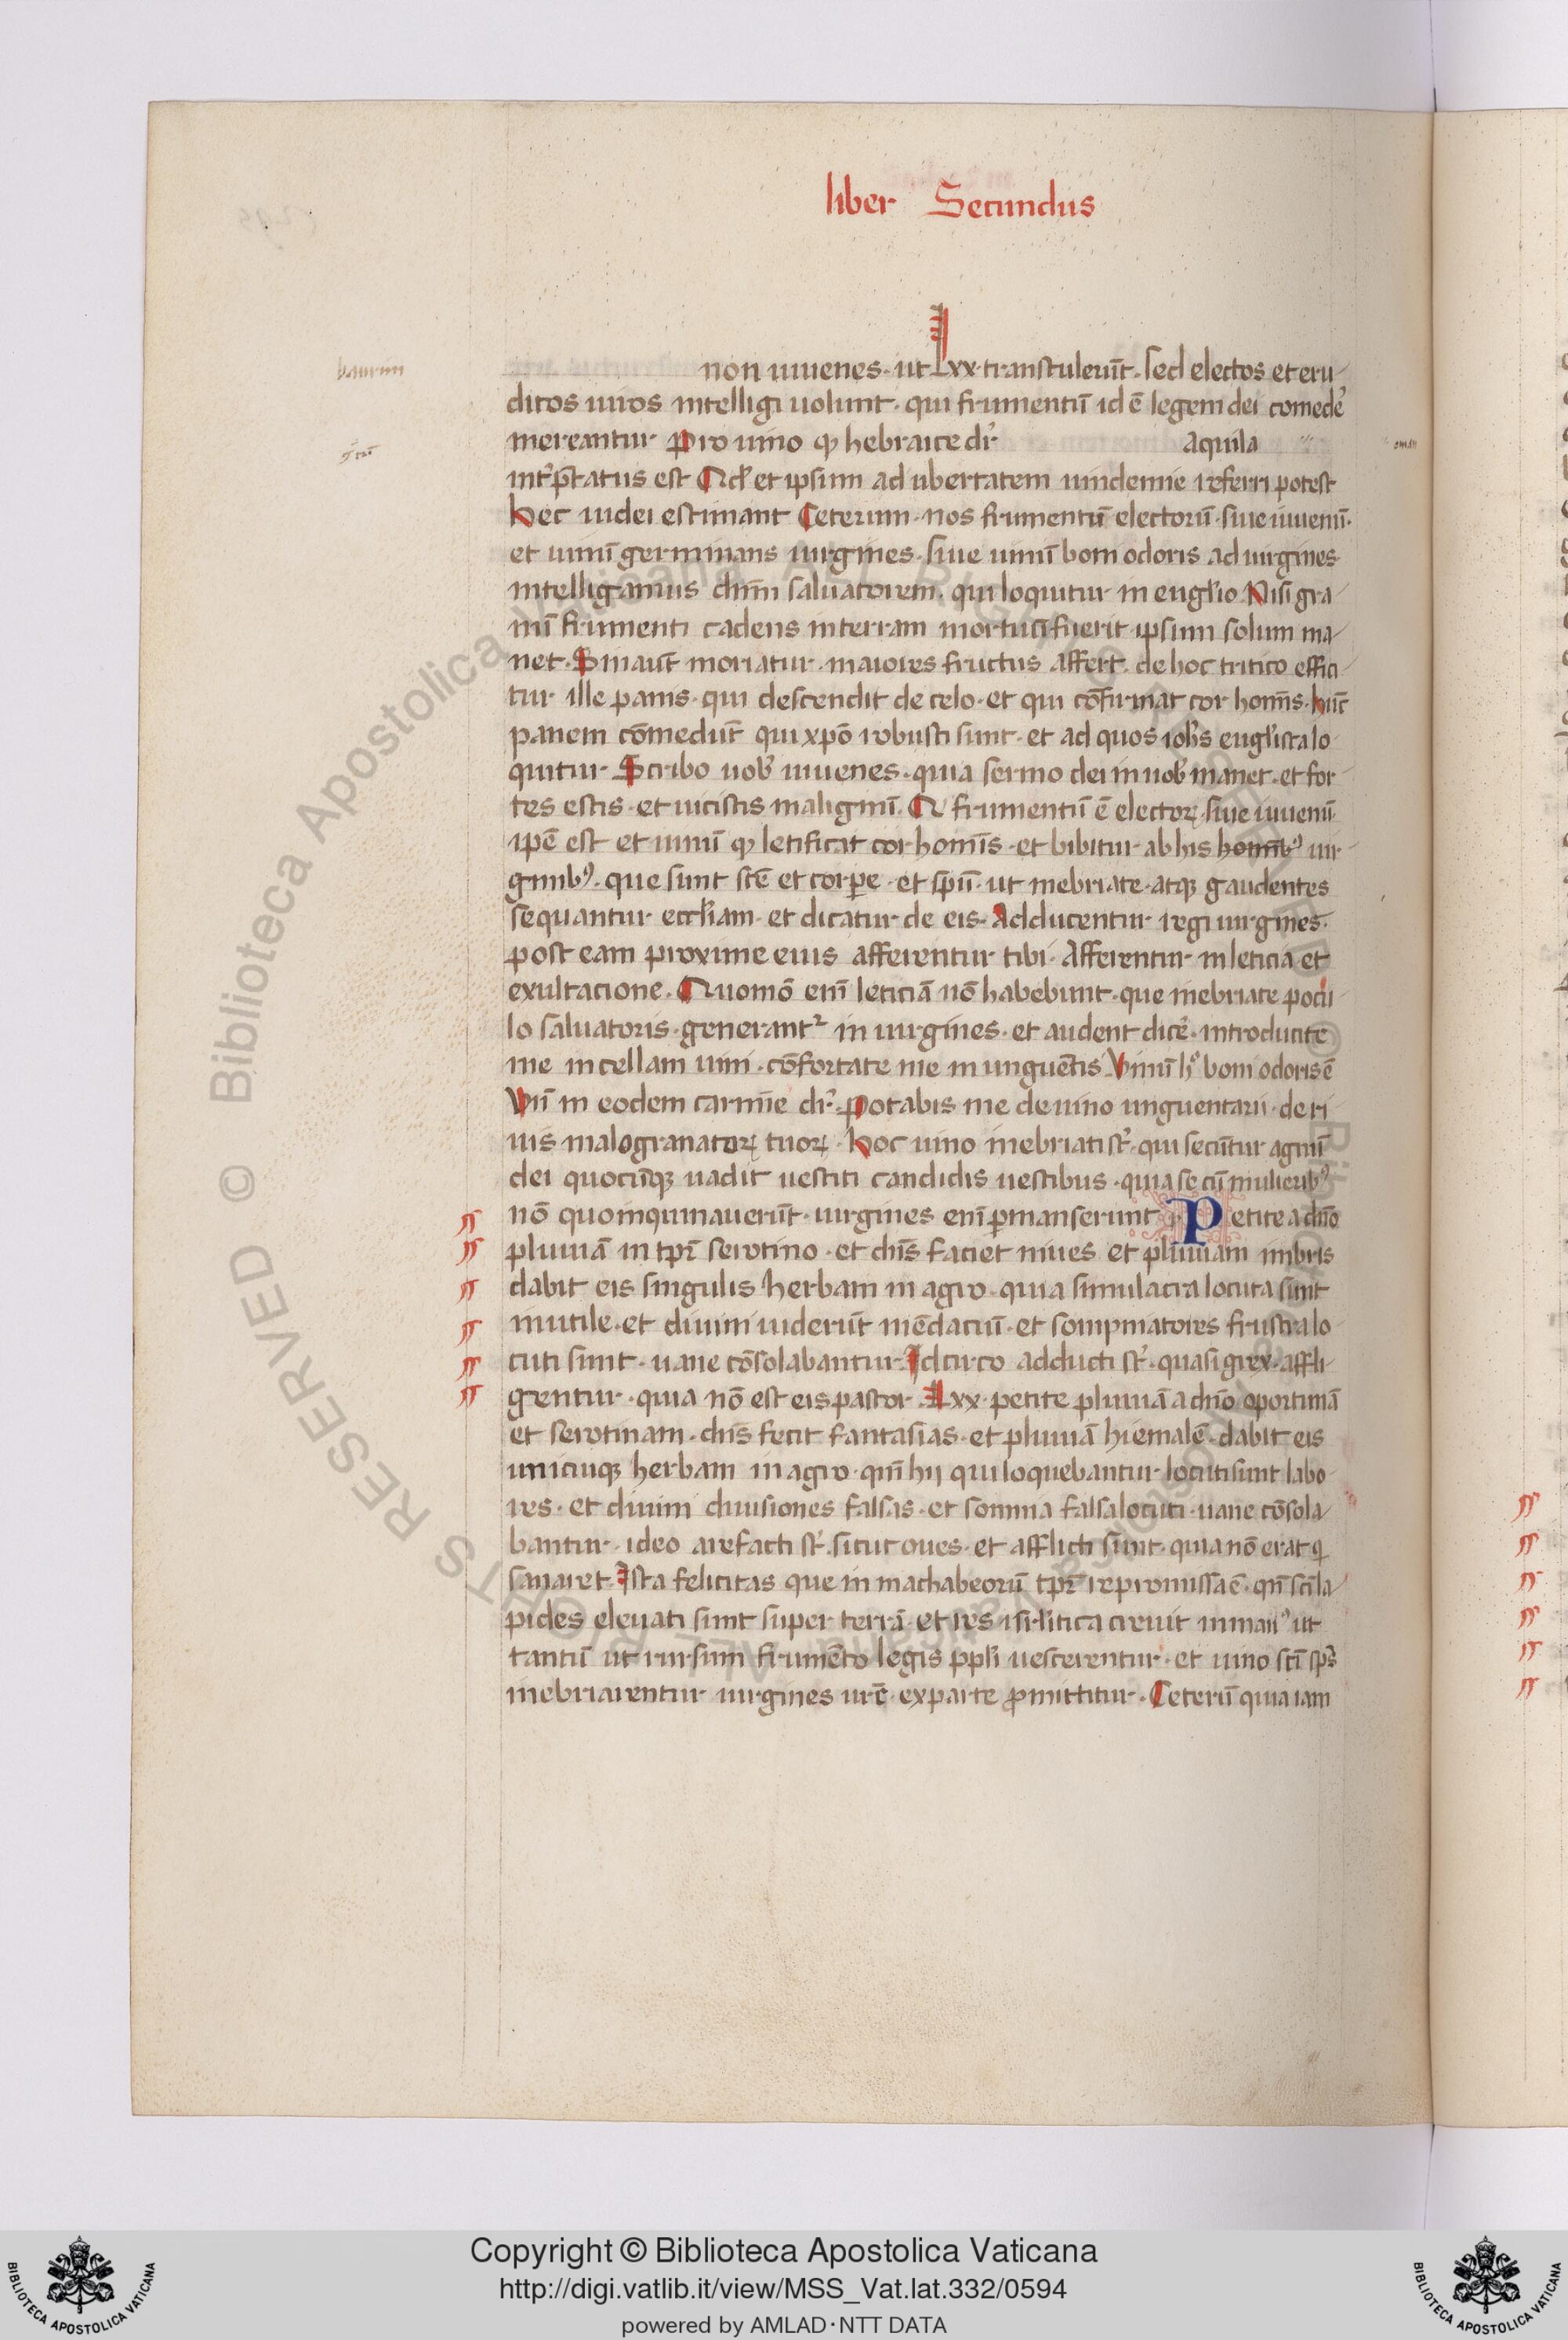 liber Secundus
baurim
non iuuenes · ut Lxx · transtulerūt · sed electos et eru-
ditos uiros intelligi uolunt · qui frumentū id ē legem dei comedẽ
mereantur Pro uino qͦ hebraice dr̃ aquila
int̃p̃tatus est Qd̛ et ipsum ad ubertatem uindemie referri potest
Hec iudei estimant Ceterum · nos frumentū electorū · siue iuuenū ·
et uinū germinans uirgines · siue uinū boni odoris ad uirgines
intelligamus dn̄m saluatorem · qui loquitur in eugl̄io Nisi gra-
nū frumenti cadens in terram mortuū fuerit ipsum solum ma-
net · Si maūt moriatur · maiores fructus affert · de hoc tritico effici-
tur ille panis · qui descendit de celo · et qui cōfirmat cor homīs · hūc
panem cōmedūt qui xp̄o robusti sunt · et ad quos ioh̄s eugl̄ista lo-
quitur Scribo uob̛ iuuenes · quia sermo dei in uob̛ manet · et for-
tes estis · et uicistis malignū · Q frumentū ē electoꝝ · siue iuuenū ·
ip̄e est et uinū qͦ letificat cor homīs · et bibitur ab his homīb᾽ uir-
ginib᾽ · que sunt sc̄e et corp̄e · et sp̄ū · ut inebriate · atqꝫ gaudentes
sequantur eccl̄iam · et dicatur de eis · Adducentur regi uirgines ·
post eam proxime eius afferentur tibi · Afferentur in leticia et
exultacione · Quomō enī leticiā nō habebunt · que inebriate pocu-
lo saluatoris · generant᾽ in uirgines · et audent dicẽ · introducite
me in cellam uini · cōfortate me in unguētis Vinū hͦ boni odoris ē
Vn̄ in eodem carmīe dr̃ · Potabis me de uino unguentarii · de ri-
uis malogranatoꝝ tuoꝝ · Hoc uino inebriati st̃ · qui secūtur agnū
dei quocūqꝫ uadit uestiti candidis uestibus · quia se cū mulierib᾽
nō quoinquinauerūt · uirgines enī ꝑmanserunt Petite a dn̄o
pluuiā in tp̄r serotino · et dn̄s faciet niues et pluuiam imbris
dabit eis singulis herbam in agro · quia simulacra locuta sunt
inutile · et diuini uiderūt mēdaciū · et sompniatores frustra lo-
cuti sunt · uane cōsolabantur · Idcirco adducti st̃ · quasi grex · affli-
gentur · quia nō est eis pastor · Lxx · petite pluuiā a dn̄o oportunā
et serotinam · dn̄s fecit fantasias · et pluuiā hiemalē · dabit eis
unicuiqꝫ herbam in agro · qm̄ hij qui loquebantur locuti sunt labo-
res · et diuini diuisiones falsas · et somnia falsa locuti · uane cōsola-
bantur · ideo arefacti st̃ · sicut oues · et afflicti sunt · quia nō erat q̄
sanaret · Ista felicitas que in machabeorū tp̄r repromissa ē · qn̄ sc̄i la-
pides eleuati sunt super terrā · et res isrl̄itica creuit inman᾽ ut
tantū ut rursum frumēto legis ppl̄i uescerentur · et uino sc̄i sp̄s
inebriarentur uirgines urē · ex parte ꝓmittitur · Ceterū quia iam
Copyright © Biblioteca Apostolica Vaticana
http://digi.vatlib.it/view/MSS_Vat.lat.332/0594
powered by AMLAD · NTT DATA
BIBLIOTECA APOSTOLICA VATICANA
BIBLIOTECA APOSTOLICA VATICANA